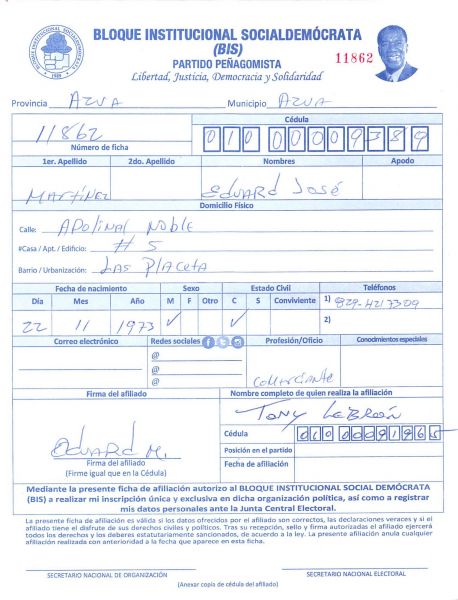 BLOQUE INSTITUCIONAL SOCIALDEMÓCRATA
(BIS)
PARTIDO PEÑAGOMISTA
Libertad, Justicia, Democracia y Solidaridad
11862
Provincia AZUA Municipio AZUA
11862
Número de ficha
Cédula
1er. Apellido 2do. Apellido Nombres Apodo
MARTÍNEZ EDUARD JOSÉ
Domicilio Físico
Calle: APOLINAL NOBLE
#Casa / Apt. / Edificio: # 5
Barrio / Urbanización: LAS PLACETA
Fecha de nacimiento Sexo Estado Civil Teléfonos
Día Mes Año M F Otro C S Conviviente 1) 829-4217309
22 11 1973 ✓ ✓ 2)
Correo electrónico Redes sociales Profesión/Oficio Conocimientos especiales
@
@
@
COMERCIANTE
Firma del afiliado Nombre completo de quien realiza la afiliación
TONY LEBRÓN
Cédula
EDUARD M.
Posición en el partido
Firma del afiliado
(Firme igual que en la Cédula)
Fecha de afiliación
Mediante la presente ficha de afiliación autorizo al BLOQUE INSTITUCIONAL SOCIAL DEMÓCRATA
(BIS) a realizar mi inscripción única y exclusiva en dicha organización política, así como a registrar
mis datos personales ante la Junta Central Electoral.
La presente ficha de afiliación es válida si los datos ofrecidos por el afiliado son correctos, las declaraciones veraces y si el
afiliado tiene el disfrute de sus derechos civiles y políticos. Tras su recepción, sello y firma autorizadas el afiliado ejercerá
todos los derechos y los deberes estatutariamente sancionados, de acuerdo a la ley. La presente afiliación anula cualquier
afiliación realizada con anterioridad a la fecha que aparece en esta ficha.
SECRETARIO NACIONAL DE ORGANIZACIÓN SECRETARIO NACIONAL ELECTORAL
(Anexar copia de cédula del afiliado)